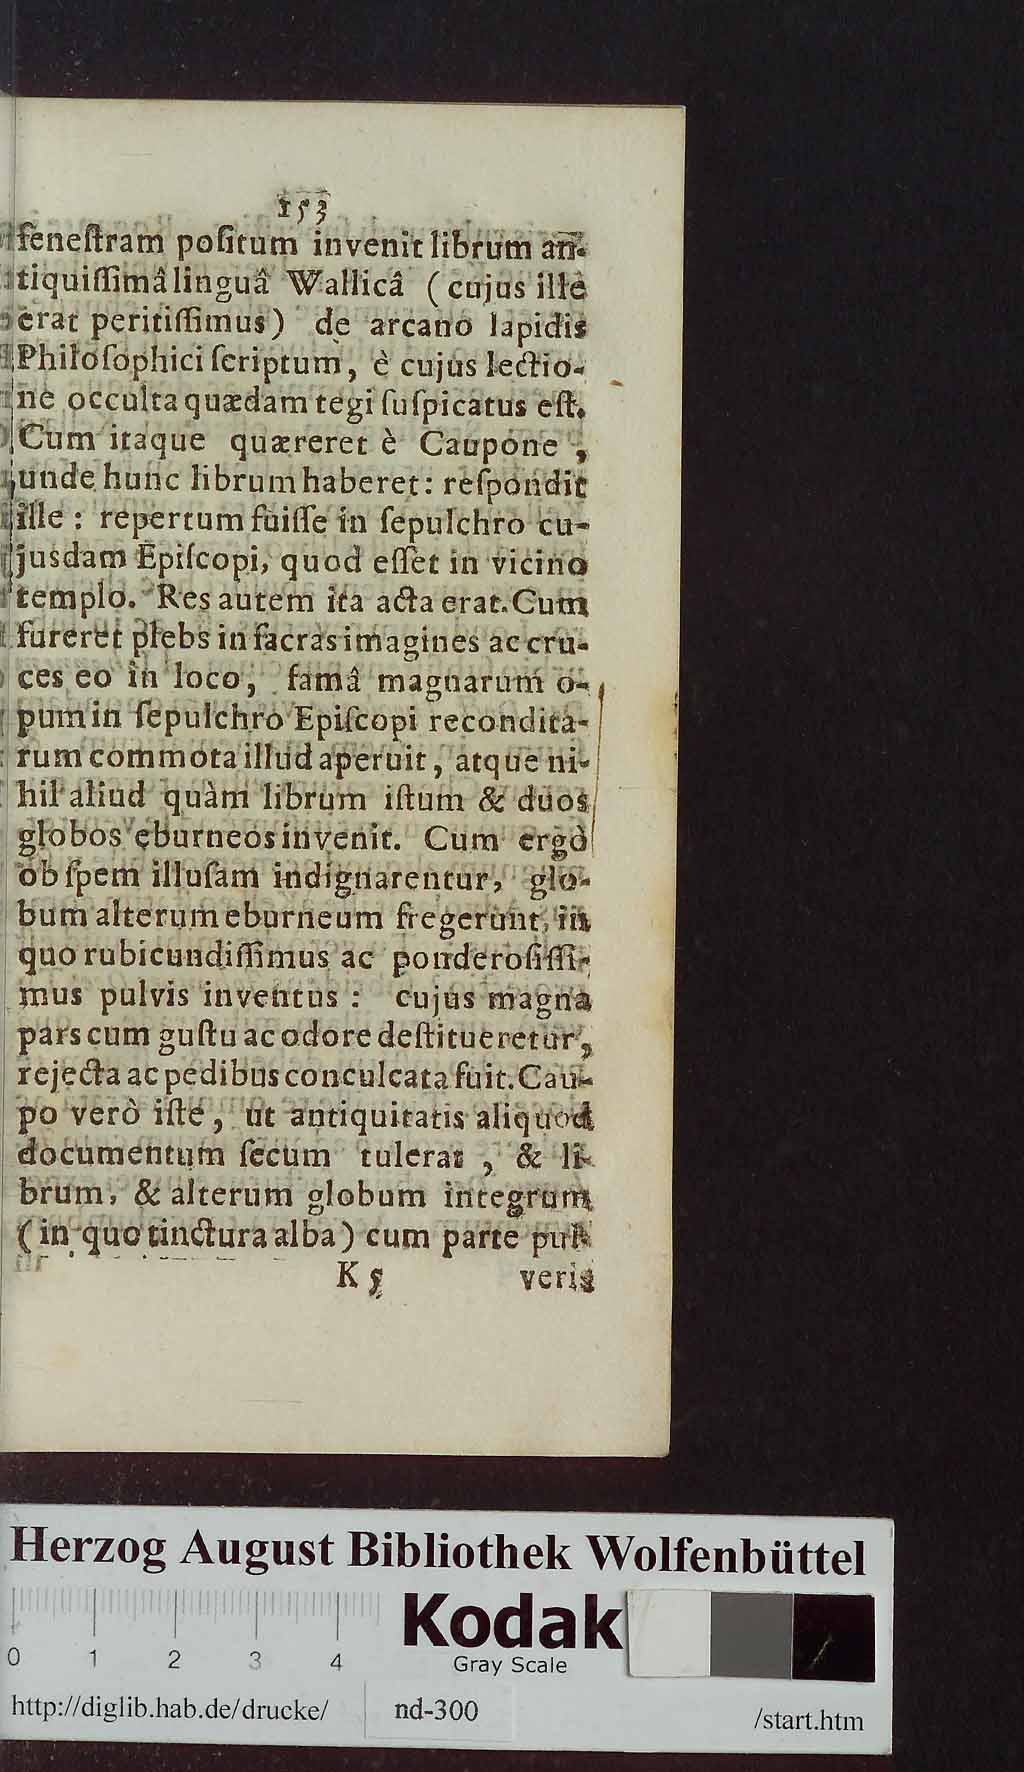 153
feneſtram poſitum invenit librum an-
tiquiſſimâ linguâ Wallicâ (cujus ille
erat peritiſſimus) de arcano lapidis
Philoſophici ſcriptum, è cujus lectio-
ne occulta quædam tegi ſuſpicatus eſt.
Cum itaque quæreret è Caupone,
unde hunc librum haberet: reſpondit
ille: repertum fuiſſe in ſepulchro cu-
jusdam Epiſcopi, quod eſſet in vicino
templo. Res autem ita acta erat. Cum
fureret plebs in ſacras imagines ac cru-
ces eo in loco, famâ magnarum o-
pum in ſepulchro Epiſcopi recondita-
rum commota illud aperuit, atque ni-
hil aliud quàm librum iſtum & duos
globos eburneos invenit. Cum ergò
ob ſpem illuſam indignarentur, glo-
bum alterum eburneum fregerunt, in
quo rubicundiſſimus ac ponderoſiſſi-
mus pulvis inventus: cujus magna
pars cum guſtu ac odore deſtitueretur,
rejecta ac pedibus conculcata fuit. Cau-
po verò iſte, ut antiquitatis aliquod
documentum ſecum tulerat, & li-
brum, & alterum globum integrum
(in quo tinctura alba) cum parte pul-
K 5 veris
Herzog August Bibliothek Wolfenbüttel
Kodak
Gray Scale
0 1 2 3 4
http://diglib.hab.de/drucke/ nd-300 /start.htm